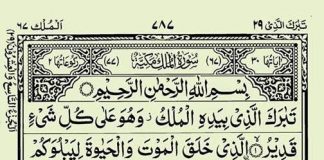 تَبٰرَكَ الَّذِىْ ٢٩ ٧٨٧ اَلْمُلْك ٦٧
اٰيَاتُهَا ٣٠ (٦٧) سُوْرَةُ الْمُلْكِ مَكِّيَّةٌ (٧٧) رُكُوْعَاتُهَا ٢
بِسْمِ اللّٰهِ الرَّحْمٰنِ الرَّحِيْمِ
تَبٰرَكَ الَّذِىْ بِيَدِهِ الْمُلْكُ وَهُوَ عَلٰى كُلِّ شَىْءٍ
قَدِيْرٌ ۝١ الَّذِىْ خَلَقَ الْمَوْتَ وَالْحَيٰوةَ لِيَبْلُوَكُمْ